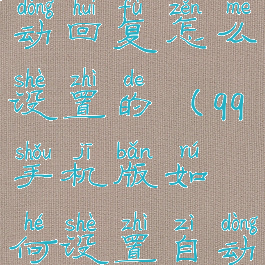 dòng huí fù zěn me
动回复怎么
shè zhì de
设置的（qq
shǒu jī bǎn rú
手机版如
hé shè zhì zì dòng
何设置自动